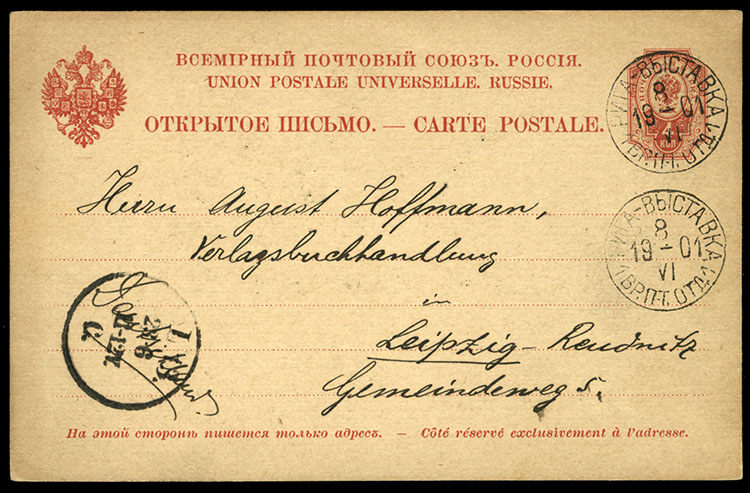 ВСЕМІРНЫЙ ПОЧТОВЫЙ СОЮЗЪ. РОССІЯ.
UNION POSTALE UNIVERSELLE. RUSSIE.
ОТКРЫТОЕ ПИСЬМО. — CARTE POSTALE.
4
КОП
РИГА-ВЫСТАВКА
8
19 – 01
VI
1 ВР.П-Т. ОТД.
Herrn August Hoffmann,
Verlagsbuchhandlung
РИГА-ВЫСТАВКА
8
19 – 01
VI
1 ВР.П-Т. ОТД.
in
Leipzig-Reudnitz
Gemeindeweg 5.
На этой сторонѣ пишется только адресъ. — Côté réservé exclusivement à l'adresse.